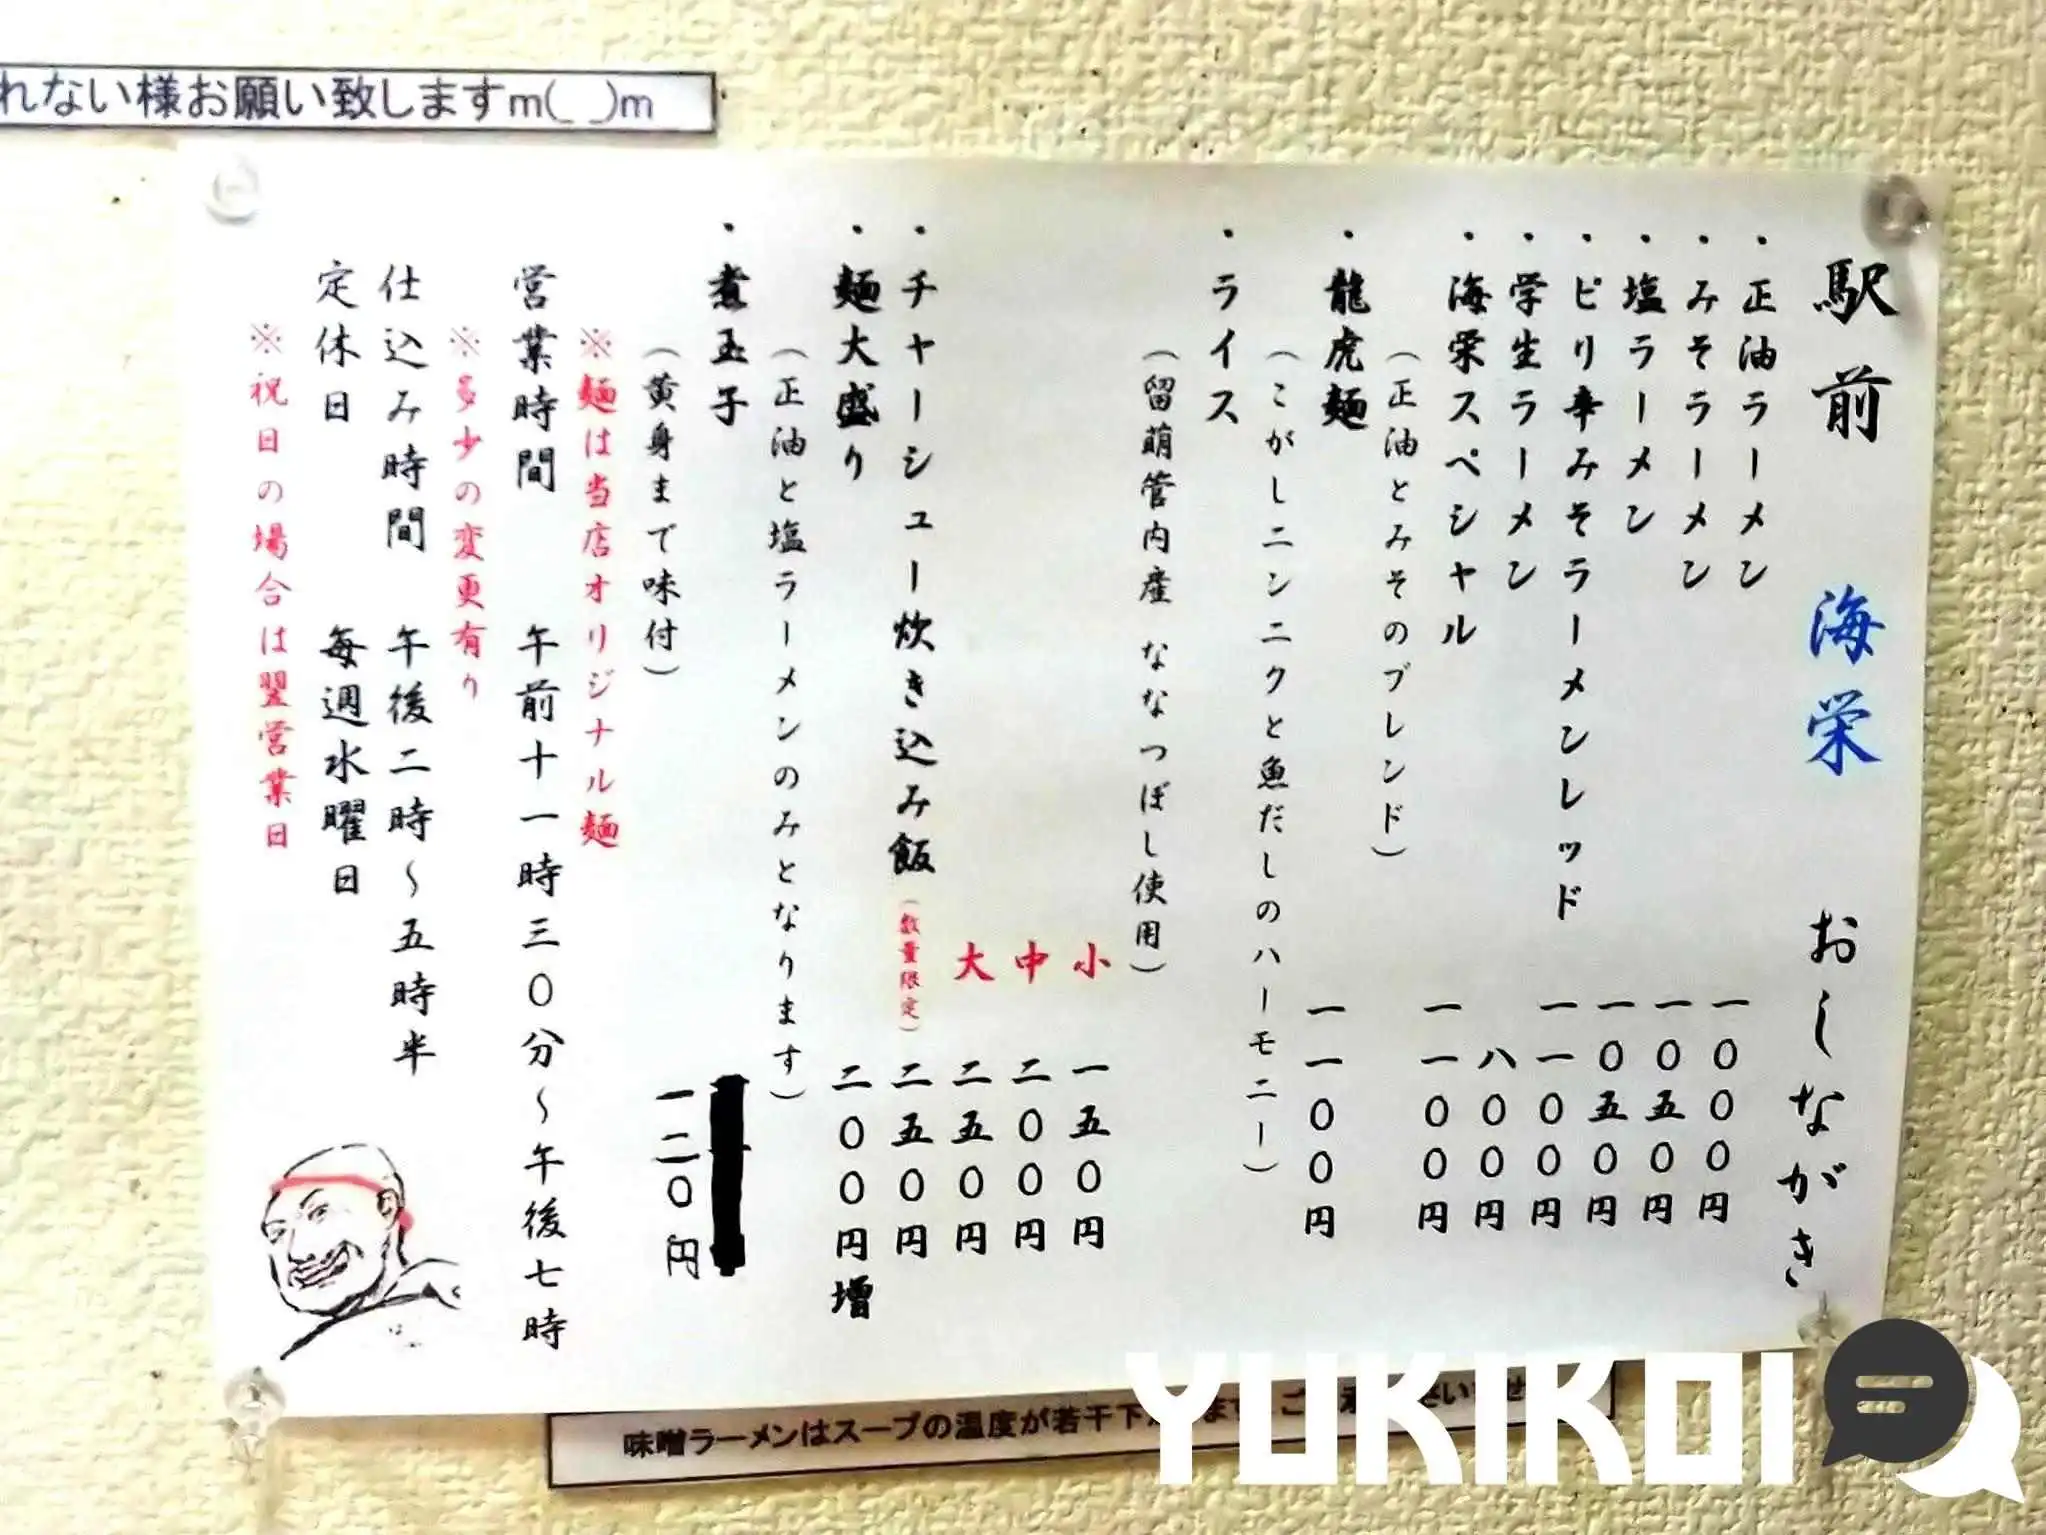 れない様お願い致しますm(_ _)m
駅前 海栄 おしながき
・正油ラーメン 一〇〇〇円
・みそラーメン 一〇五〇円
・塩ラーメン 一〇五〇円
・ピリ辛みそラーメンレッド 一一〇〇円
・学生ラーメン 八〇〇円
・海栄スペシャル 一一〇〇円
(正油とみそのブレンド)
・龍虎麺 一一〇〇円
(こがしニンニクと魚だしのハーモニー)
・ライス
(留萌管内産 ななつぼし使用)
小 一五〇円
中 二〇〇円
大 二五〇円
・チャーシュー炊き込み飯(数量限定) 二五〇円
・麺大盛り 二〇〇円増
(正油と塩ラーメンのみとなります)
・煮玉子
一二〇円
(黄身まで味付)
※麺は当店オリジナル麺
営業時間 午前十一時三〇分~午後七時
※多少の変更有り
仕込み時間 午後二時~五時半
定休日 毎週水曜日
※祝日の場合は翌営業日
味噌ラーメンはスープの温度が若干下
YUKIKOI